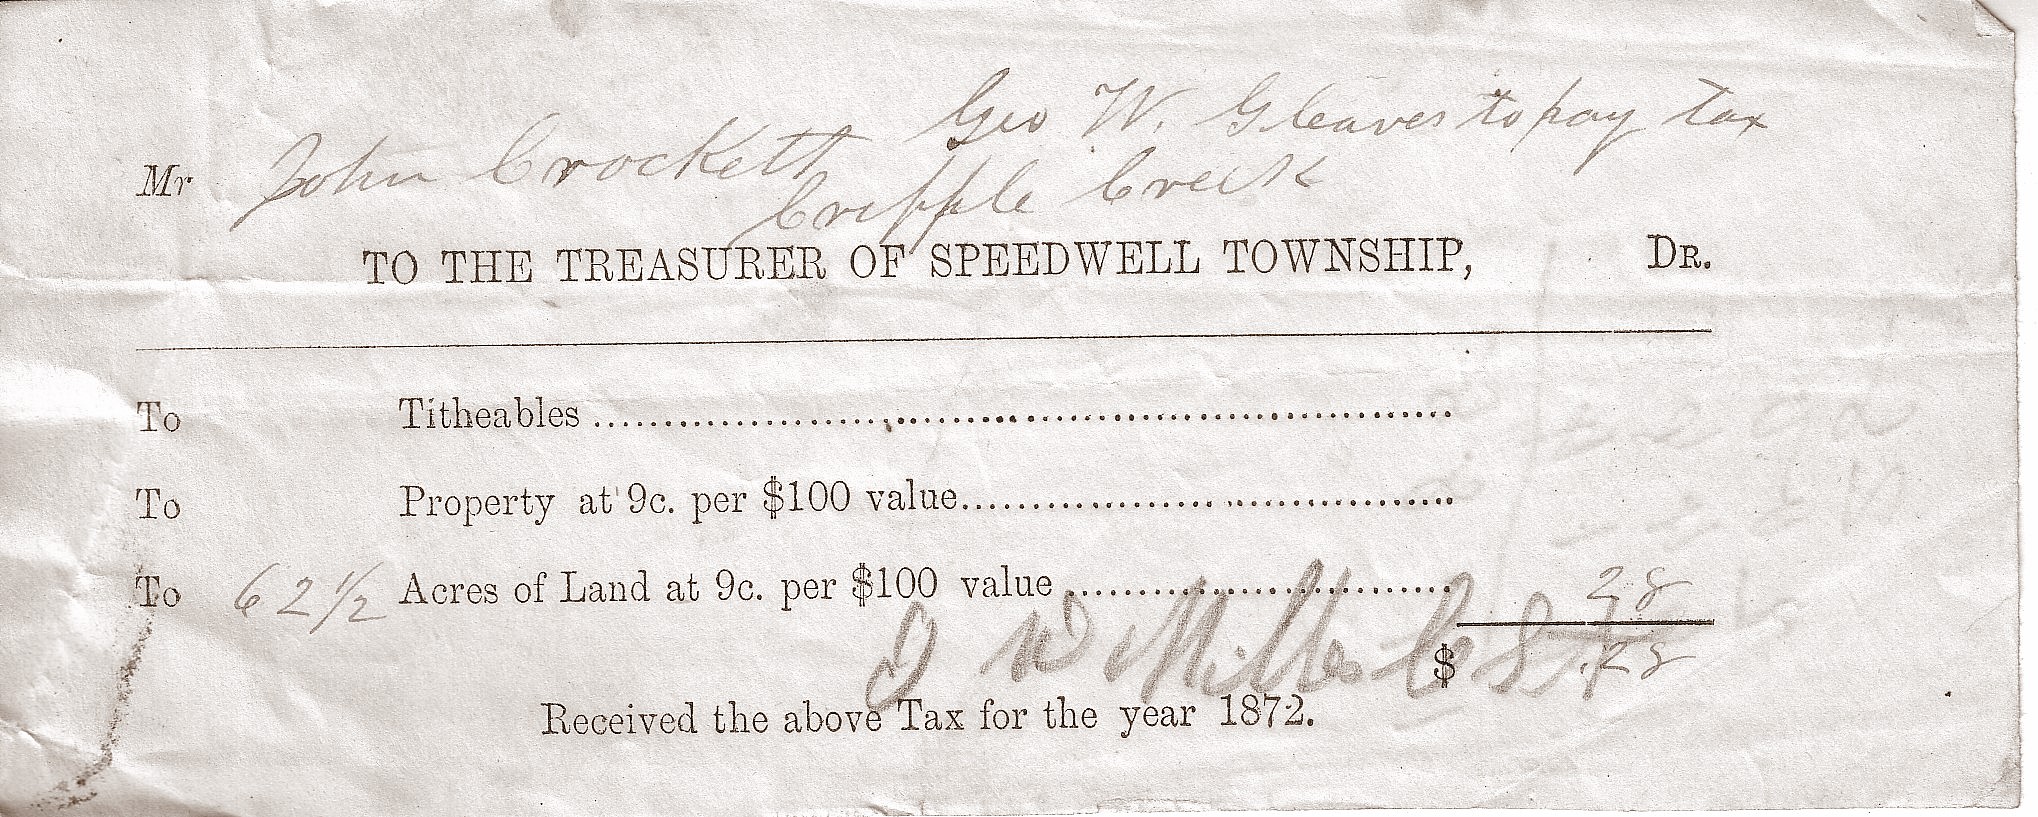 Geo W. Gleaves to pay tax
Mr John Crockett
Cripple Creek
TO THE TREASURER OF SPEEDWELL TOWNSHIP, DR.
To Titheables
To Property at 9c. per $100 value
To 62 1/2 Acres of Land at 9c. per $100 value 28
$ .28
J W Miller C S T
Received the above Tax for the year 1872.